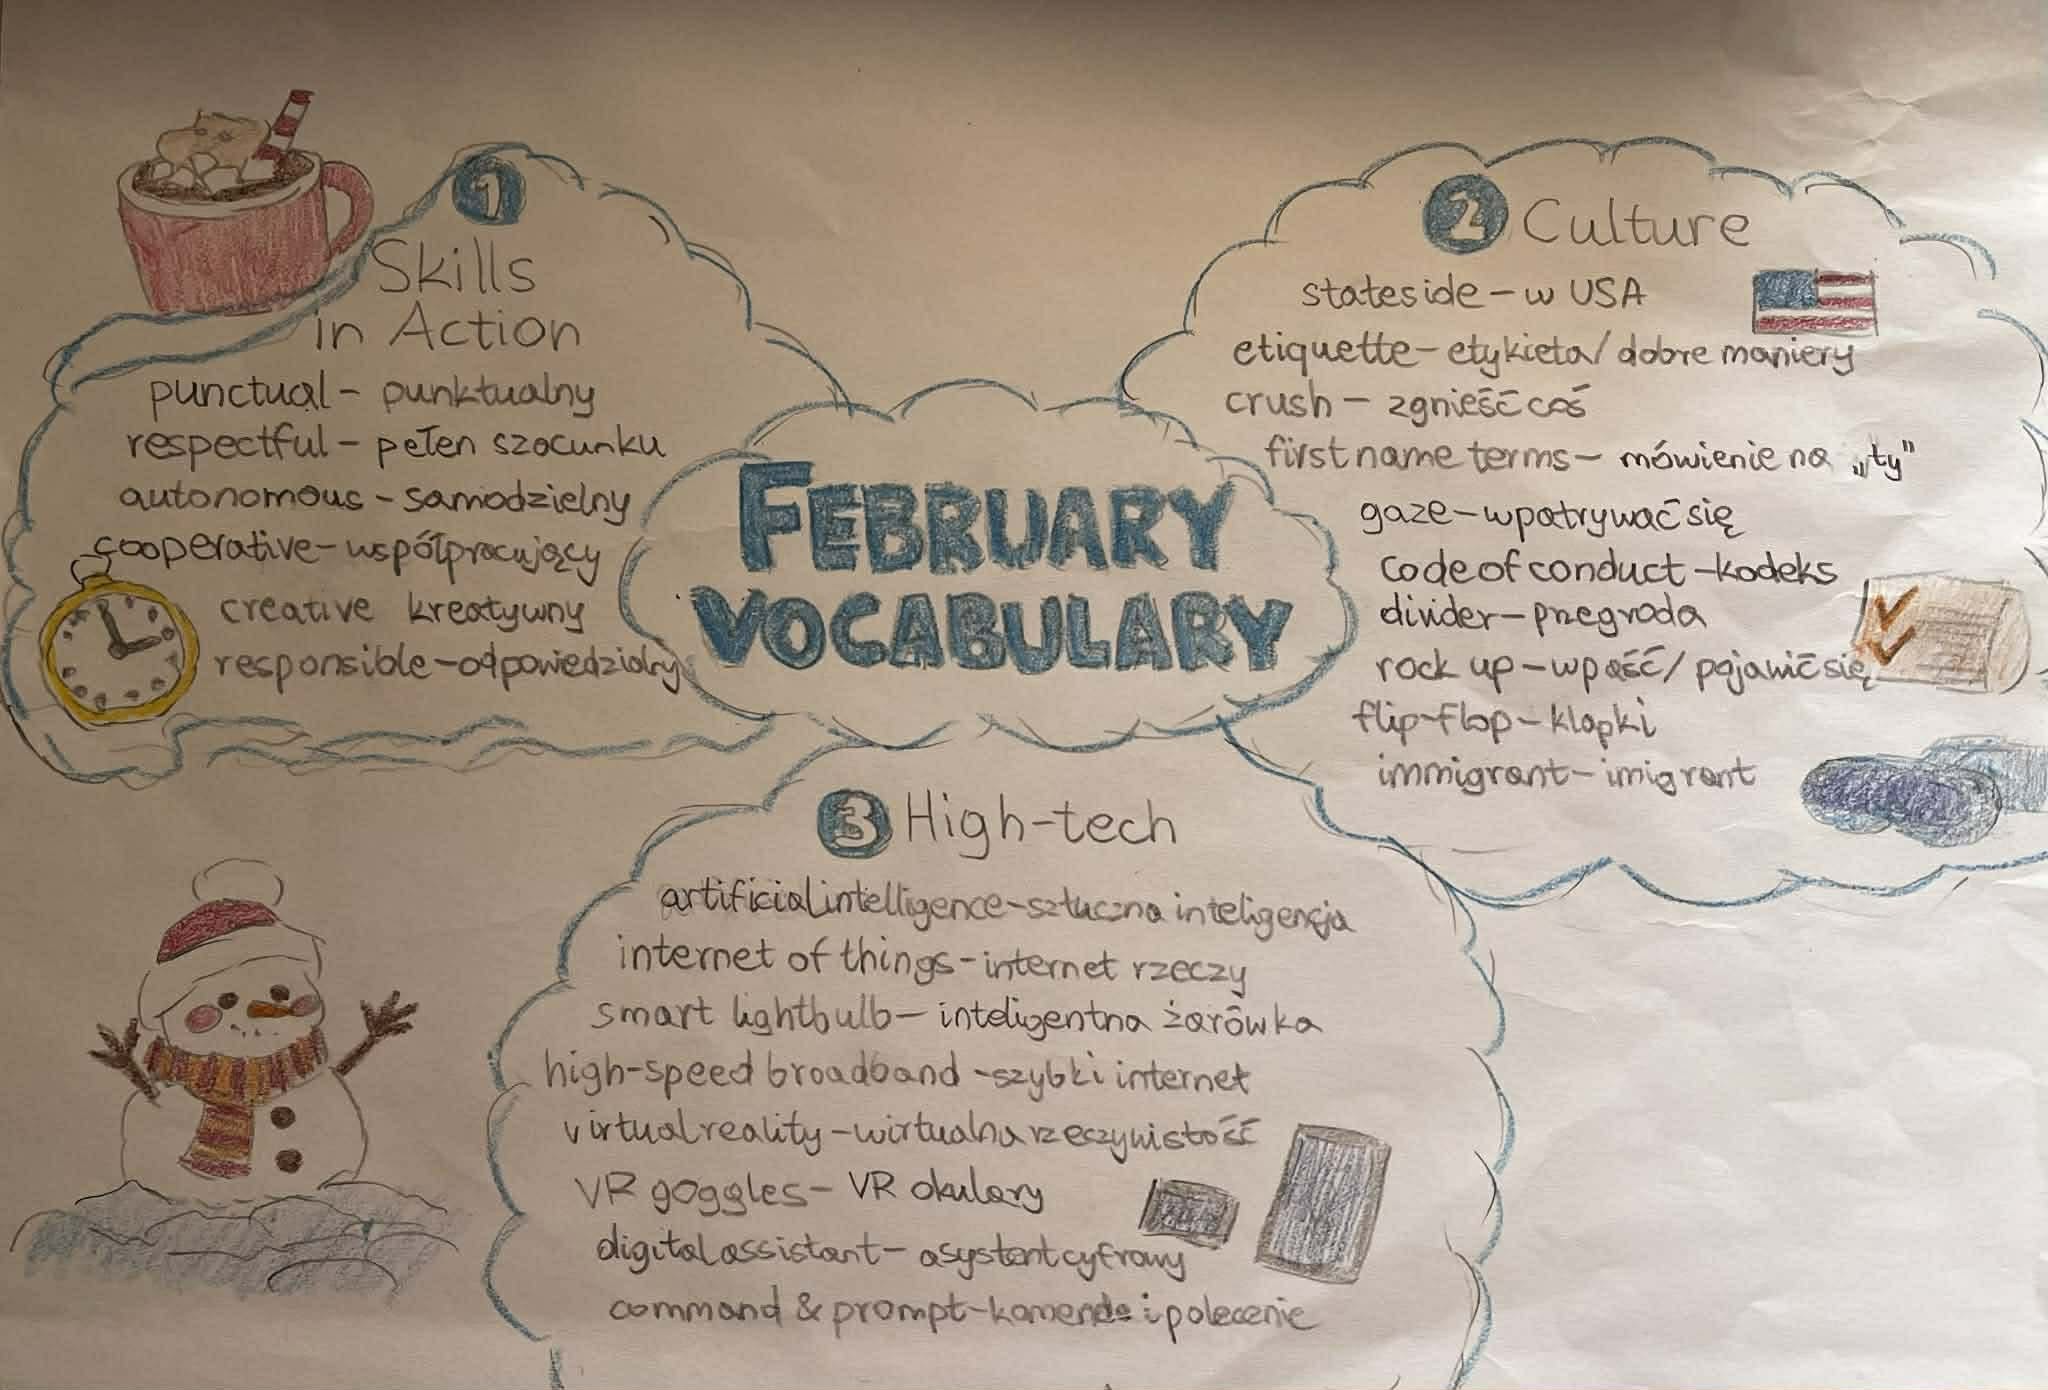 1
Skills
in Action
punctual - punktualny
respectful - pełen szacunku
autonomous - samodzielny
cooperative - współpracujący
creative kreatywny
responsible - odpowiedzialny
FEBRUARY
VOCABULARY
2 Culture
stateside - w USA
etiquette - etykieta / dobre maniery
crush - zgnieść coś
first name terms - mówienie na „ty"
gaze - wpatrywać się
code of conduct - kodeks
divider - przegroda
rock up - wpaść / pojawić się
flip-flop - klapki
immigrant - imigrant
3 High-tech
artificial intelligence - sztuczna inteligencja
internet of things - internet rzeczy
smart lightbulb - inteligentna żarówka
high-speed broadband - szybki internet
virtual reality - wirtualna rzeczywistość
VR goggles - VR okulary
digital assistant - asystent cyfrowy
command & prompt - komenda i polecenie